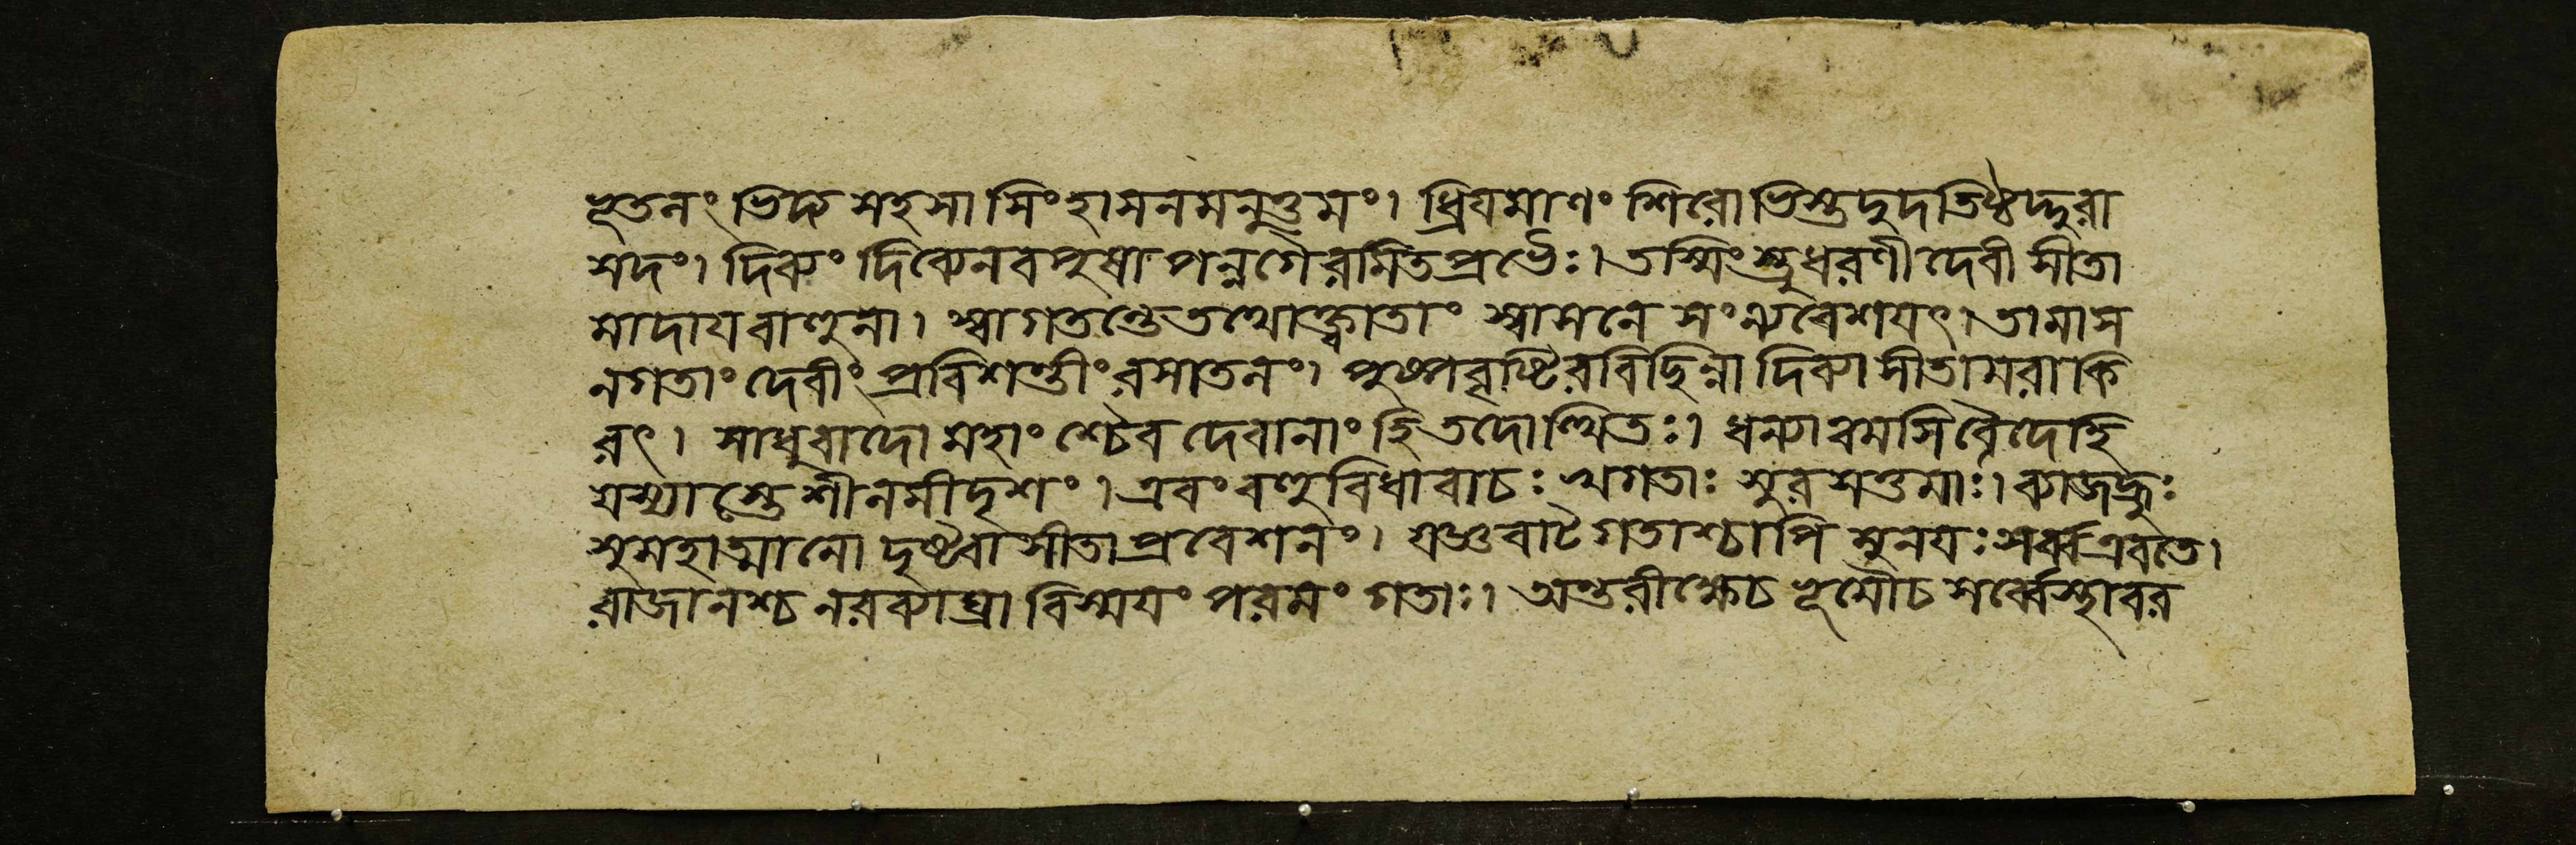 ভূতলং ভিত্ত্বা সহসা সিংহাসনমনুত্তমং। ধ্রিযমাণং শিরোভিস্তুদুদতিষ্ঠদ্দুরা
সদং। দিব্যং দিব্যেনবপুষা পন্নগৈরমিতপ্রভৈঃ। তস্মিংস্তুধরণীদেবী সীতা
মাদায বাহুনা। স্বাগতন্তেতথোক্ত্বাতাং স্বাসনে সংন্যবেশযৎ। তামাস
নগতাং দেবীং প্রবিশন্তীং রসাতলং। পুষ্পবৃষ্টিরবিছিন্না দিব্যা সীতামবাকি
রৎ। সাধুবাদো মহাংশ্চৈব দেবানাং হি তদোত্থিতঃ। ধন্যা ত্বমসি বৈদেহি
যস্যাস্তে শীলমীদৃশং। এবং বহুবিধা বাচঃ খগতাঃ সুরসত্তমাঃ। ব্যাজহ্রুঃ
সুমহাত্মানো দৃষ্টবা সীতাপ্রবেশনং। যজ্ঞবাটগতাশ্চাপি মুনযঃ সর্ব্ব এবতে।
রাজানশ্চ নরব্যাঘ্রা বিস্মযং পরমং গতাঃ। অন্তরীক্ষেচ ভূমৌচ সর্ব্বেস্থাবর